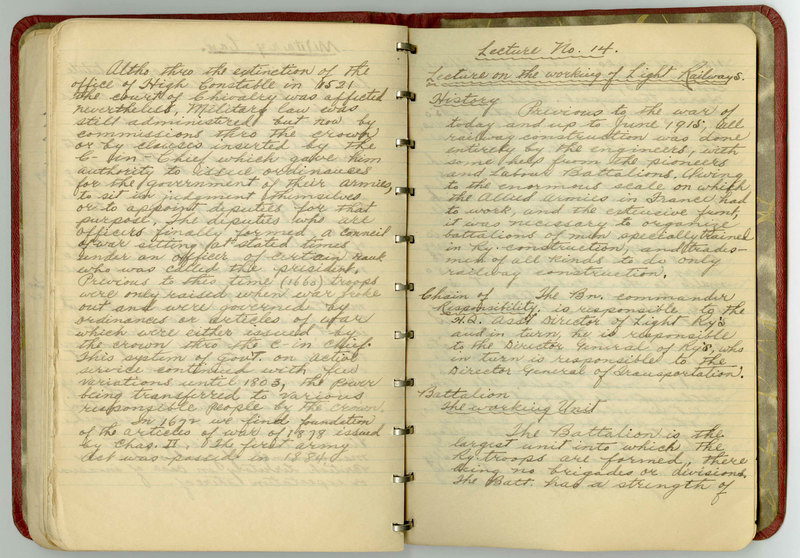 Altho thro the extinction of the
office of High Constable in 1521
the court of Chivalry was affected
nevertheless, Military law was
still administered but now by
commissions thro the crown
or by clauses inserted by the
C- in- Chief which gave him
authority to issue ordinauses
for the government of their armies,
to sit in judgment themselves
or to appoint deputies for that
purpose. The deputies who are
officers finally formed a council
of war sitting at stated times
under an officer of certain rank
who was called the president.
Previous to this time (1660) troops
were only raised when war broke
out and were governed by
ordinances or articles of war
which were either issued by
the crown thro the C-in Chief.
This system of Govt. on active
service continued with few
variations until 1803, the power
being transferred to various
responsible people by the crown.
In 1672 we find foundation
of the articles of war of 1878 issued
by Chas. II. The first army
act was passed in 1884.
Lecture No. 14.
Lecture on the working of Light Railways.
History Previous to the war of
today and up to June 1915, all
railway construction was done
entirely by the engineers, with
some help from the pioneers
and Labour Battalions. Owing
to the enormous scale on which
the Allied armies in France had
to work, and the extensive front,
it was necessary to organize
battalions of men specially trained
in Ry. construction, and trades-
men of all kinds to do only
railway construction.
Chain of The Bn. commander
Responsibility. is responsible to the
H.Q. Asst Director of Light Ry's
and in turn he is responsible
to the Director General of Ry's, who
in turn is responsible to the
Director General of Transportation.
Battalion
The working Unit
The Battalion is the
largest unit into which the
Ry. troops are formed, there
being no brigades or divisions.
The Batt. has a strength of